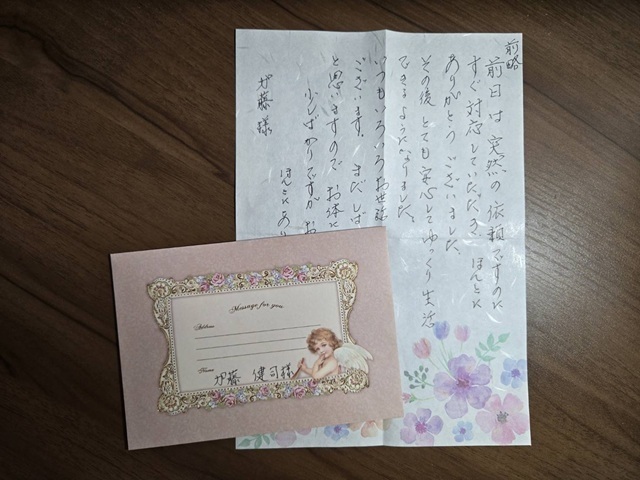 前略
前日は突然の依頼ですのに
すぐ対応していただき、ほんとに
ありがとうございました。
その後とても安心してゆっくり生活
できるようになりました。
いつもいろいろお世
ございます。まだしば
と思いますので お体に
少しばかりですが お
ほんとにあり
藤様
Message for you
Address
Name
藤 健司様